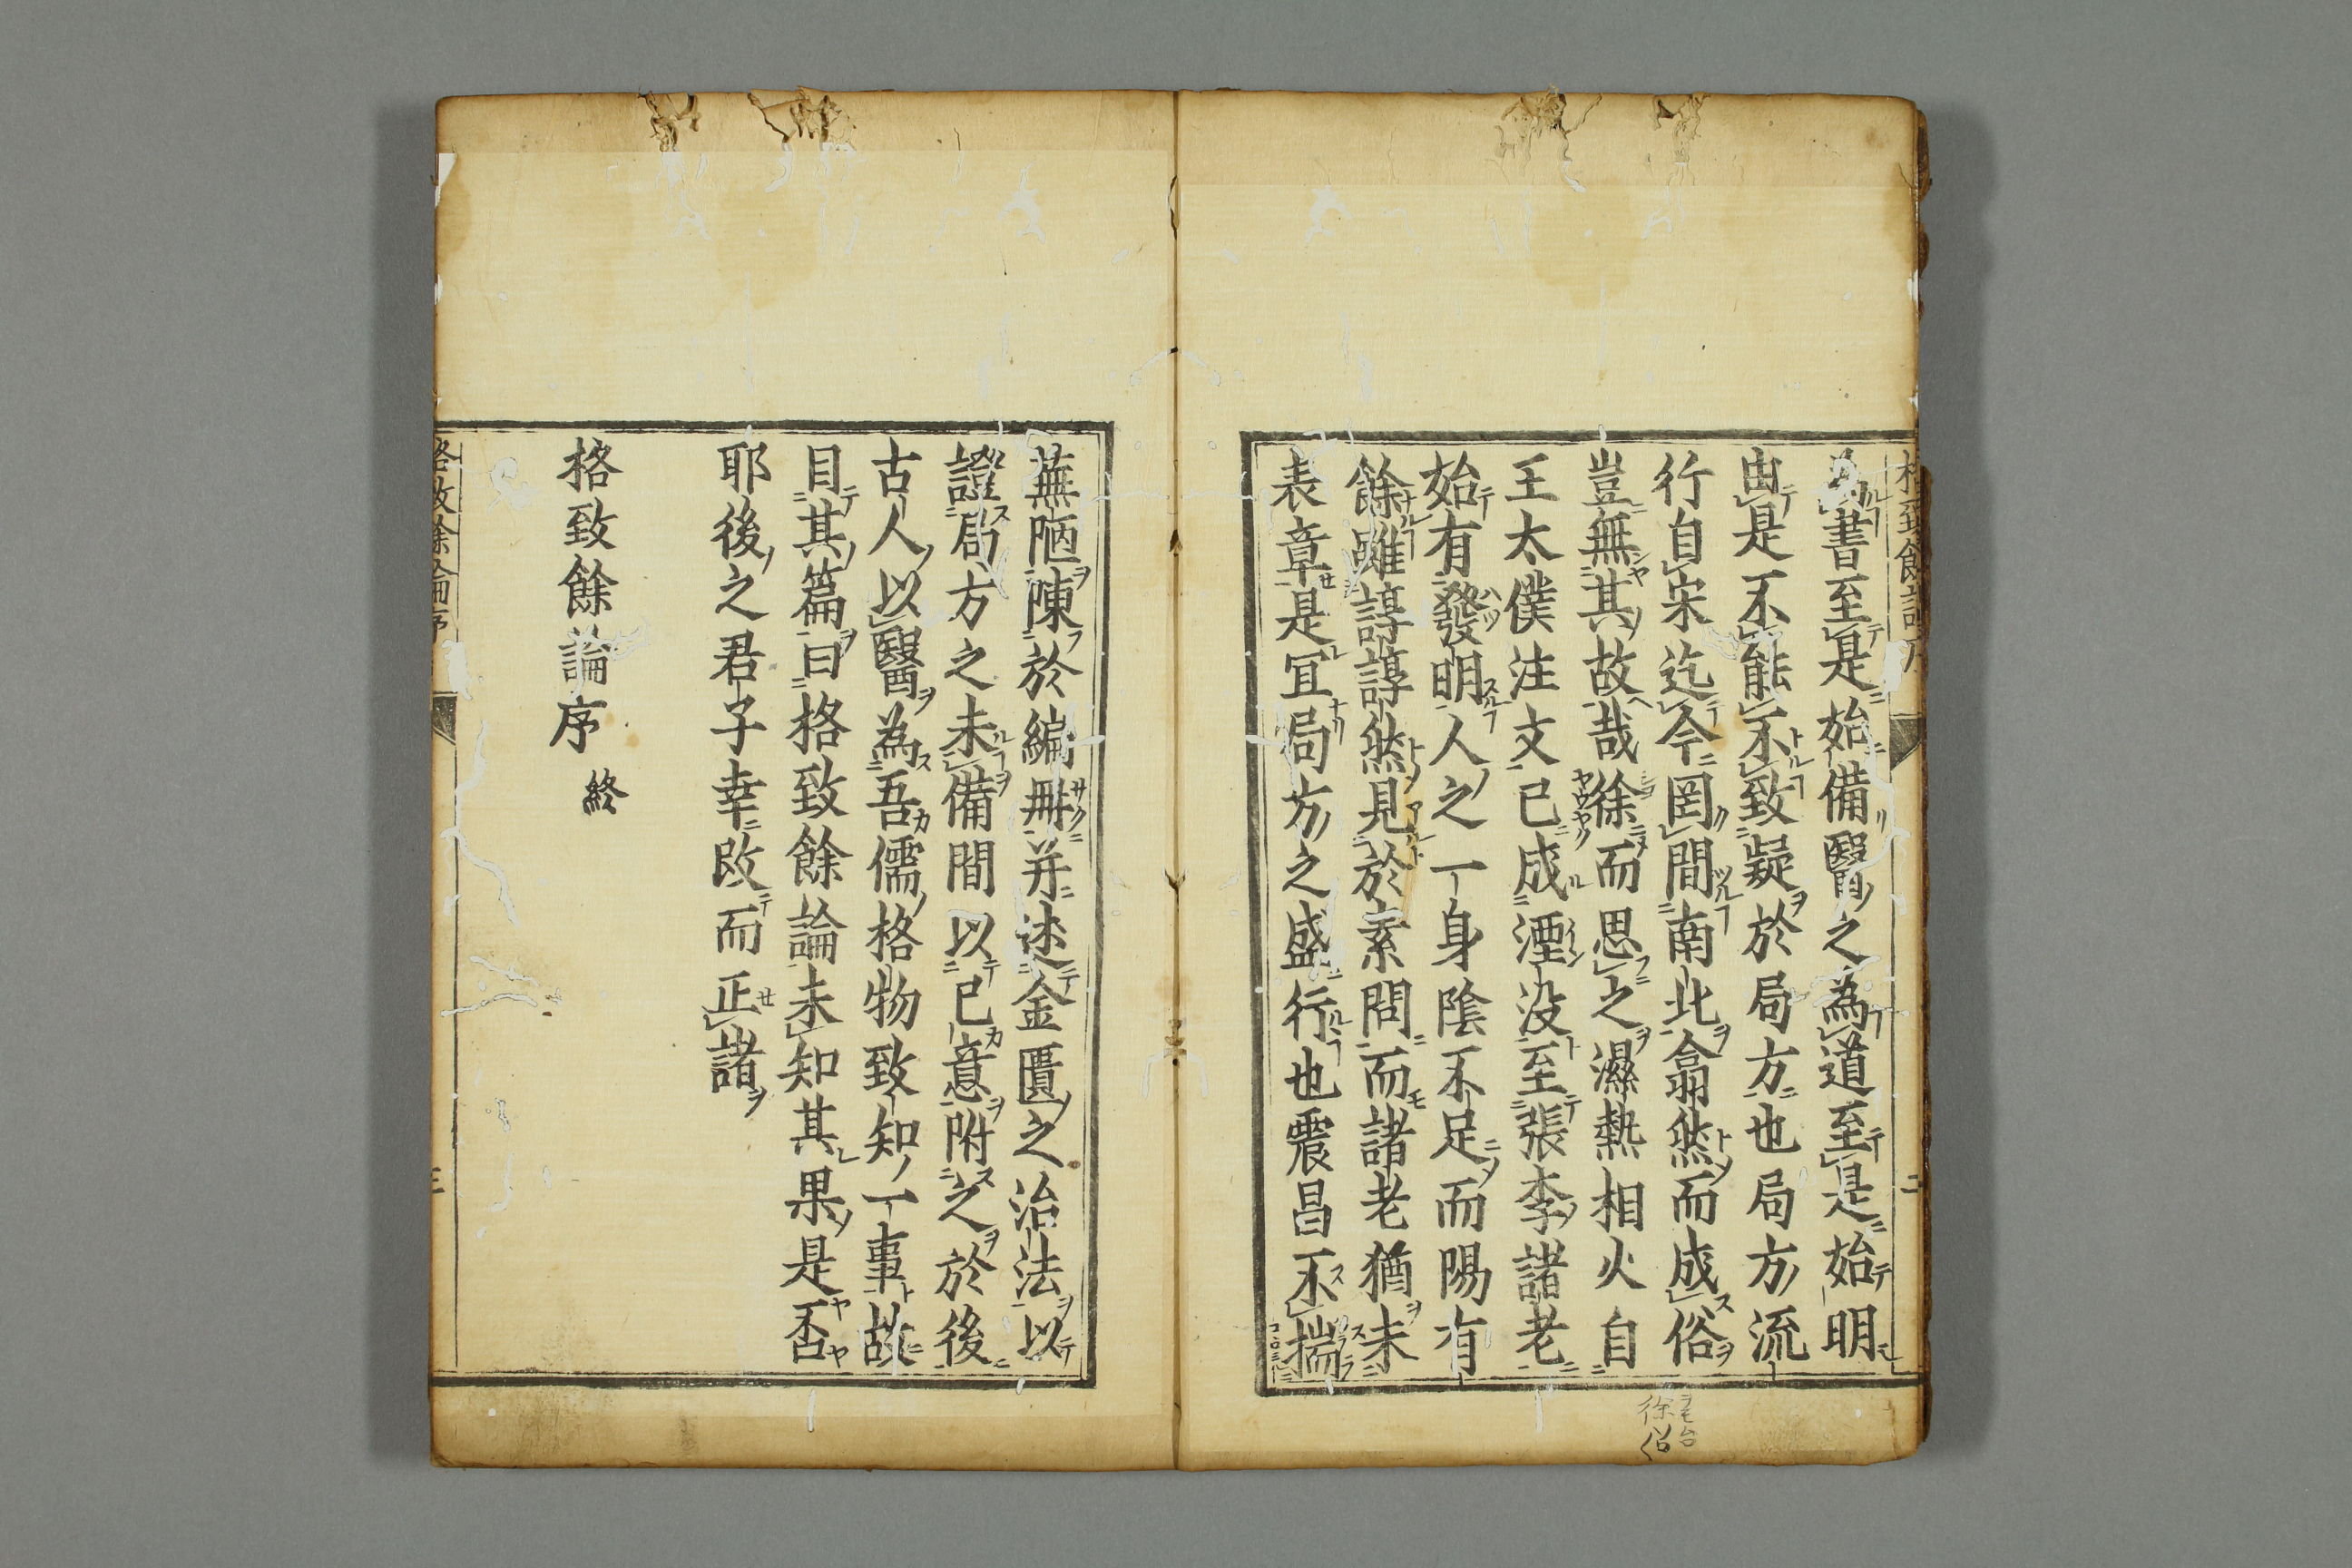 為書至是始備醫之為道至是始明
由是不能不致疑於局方也局方流
行自宋迄今罔間南北翕然而成俗
豈無其故哉徐而思之濕熱相火自
王太僕注文已成湮没至張李諸老
始有發明人之一身陰不足而陽有
餘雖諄諄然見於素問而諸老猶未
表章是宜局方之盛行也震昌不揣
蕪陋陳於編冊并述金匱之治法以
證局方之未備間以已意附之於後
古人以醫為吾儒格物致知一事故
目其篇曰格致餘論未知其果是否
耶後之君子幸改而正諸
格致餘論序 終